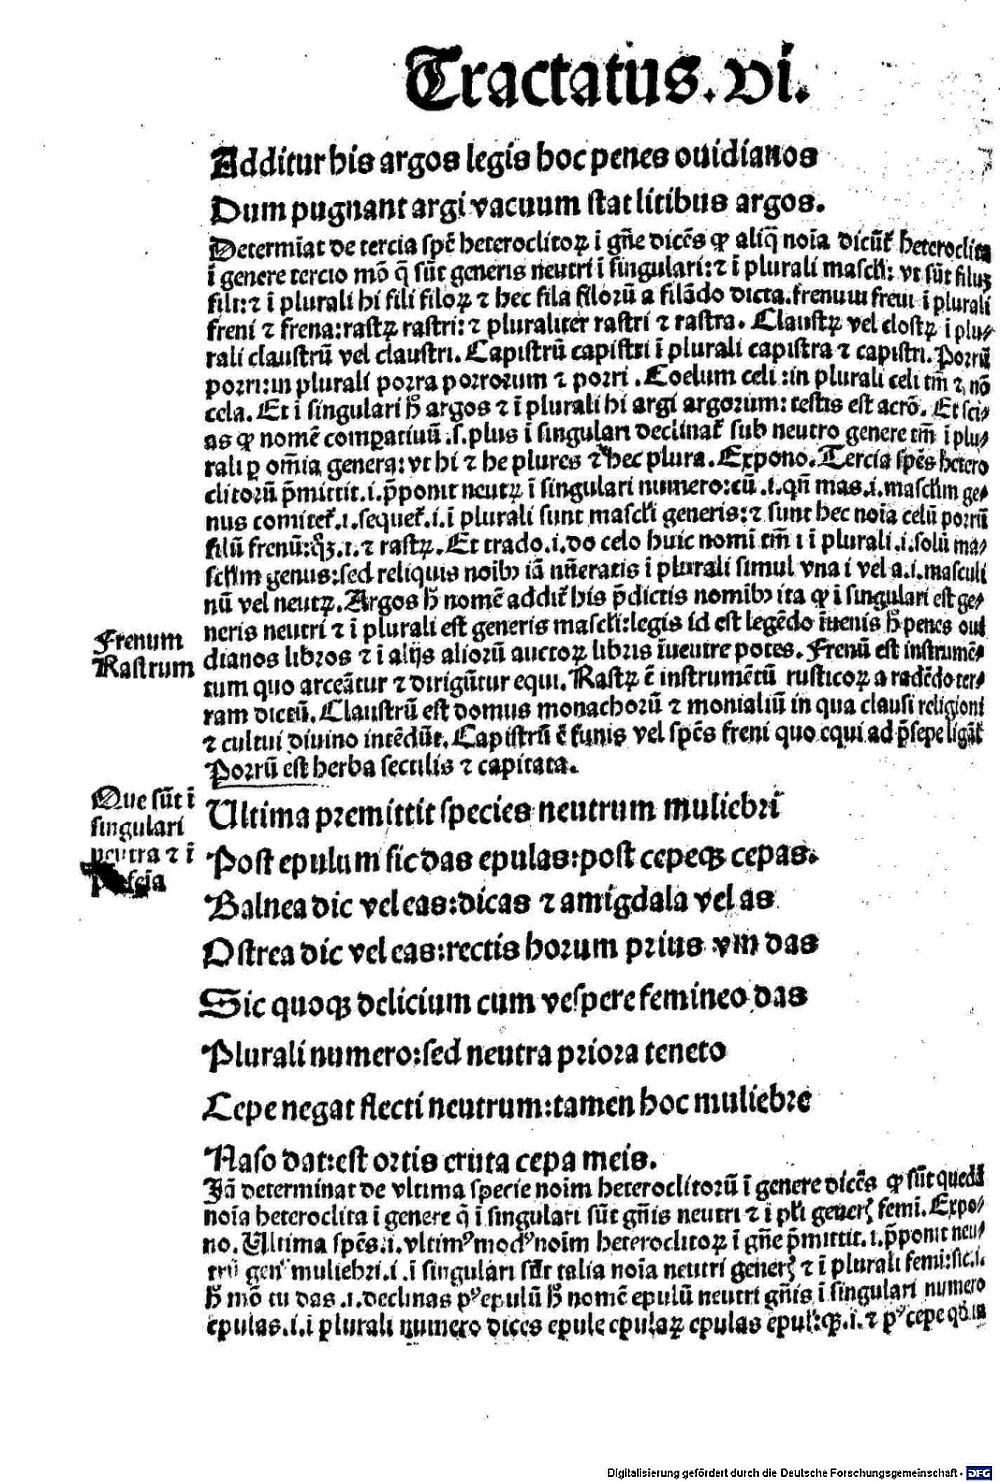 Tractatus. vi.
Additur his argos legis hoc penes ouidianos
Dum pugnant argi vacuum stat litibus argos.
Determīat de tercia spē heteroclitoꝝ ī gn̄e dicēs ꝙ aliq̄ noīa dicūt᷑ heteroclita
ī genere tercio mō q̄ sūt generis neutri ī singulari: ⁊ ī plurali mascl̓i: vt sūt filuꝫ
fili: ⁊ ī plurali hi fili filoꝝ ⁊ hec fila filorū a filādo dicta. frenum freni ī plurali
freni ⁊ frena: rastꝝ rastri: ⁊ pluraliter rastri ⁊ rastra. Claustꝝ vel clostꝝ ī plu⸗
rali claustrū vel claustri. Capistrū capistri ī plurali capistra ⁊ capistri. Porrū
porri: in plurali porra porrorum ⁊ porri. Coelum celi: in plurali celi tm̄ ⁊ nō
cela. Et ī singulari h̄ argos ⁊ ī plurali hi argi argorum: testis est acrō. Et sci⸗
as ꝙ nomē comparatiuū .s. plus ī singulari declinat᷑ sub neutro genere tm̄ ī plu⸗
rali ꝑ om̄ia genera: vt hi ⁊ he plures ⁊ hec plura. Expono. Tercia spēs hetero
clitorū p̄mittit .i. p̄ponit neutꝝ ī singulari numero: cū .i. qn̄ mas .i. mascl̓im ge⸗
nus comitet᷑ .i. sequet᷑ .i. ī plurali sunt mascl̓i generis: ⁊ sunt hec noīa celū porrū
filū frenū: qꝫ .i. ⁊ rastꝝ. Et trado .i. do celo huic nomī tm̄ ı ī plurali .i. solū ma⸗
scl̓im genus: sed reliquis noībꝰ iā nūeratis ī plurali simul vna i vel a .i. masculi
nū vel neutꝝ. Argos h̄ nomē addit᷑ his p̄dictis nomībꝰ ita ꝙ ī singulari est ge⸗
neris neutri ⁊ ī plurali est generis mascl̓i: legis id est legēdo īuenis h̄ penes oui
dianos libros ⁊ ī alijs aliorū auctoꝝ libris īuenire potes. Frenū est instrumē⸗
tum quo arceātur ⁊ dirigūtur equi. Rastꝝ ē instrumētū rusticoꝝ a radēdo ter⸗
ram dictū. Claustrū est domus monachorū ⁊ monialiū in qua clausi religioni
⁊ cultui diuino intēdūt. Capistrū ē funis vel spēs freni quo equi ad p̄sepe ligāt᷑
Porrū est herba seculis ⁊ capitata.
Frenum
Rastrum
Ultima premittit species neutrum muliebri
Post epulum sic das epulas: post cepeqꝫ cepas.
Balnea dic vel eas: dicas ⁊ amigdala vel as
Ostrea dic vel eas: rectis horum prius vm das
Sic quoqꝫ delicium cum vespere femineo das
Plurali numero: sed neutra priora teneto
Cepe negat flecti neutrum: tamen hoc muliebre
Naso dat: est ortis eruta cepa meis.
Que sūt ī
singulari
neutra ⁊ ī
Iā determinat de vltima specie noīm heteroclitorū ī genere dicēs ꝙ sūt quedā
noīa heteroclita ī genere q̄ ī singulari sūt gn̄is neutri ⁊ ī pl̓i generꝭ femi. Expo⸗
no. Ultima spēs .i. vltimꝰ modꝰ noīm heteroclitoꝝ ī gn̄e p̄mittit .i. p̄ponit neu⸗
trū genꝰ muliebri .i. ī singulari sūt talia noīa neutri generꝭ ⁊ ī plurali femi: sic .i.
h̄ mō tu das .i. declinas pꝰ epulū h̄ nomē epulū neutri gn̄is ī singulari numero
epulas .i. ī plurali numero dices epule epulaꝝ epulas epul̓: qꝫ .i. ⁊ pꝰ cepe qd̄ in
Digitalisierung gefördert durch die Deutsche Forschungsgemeinschaft - DFG